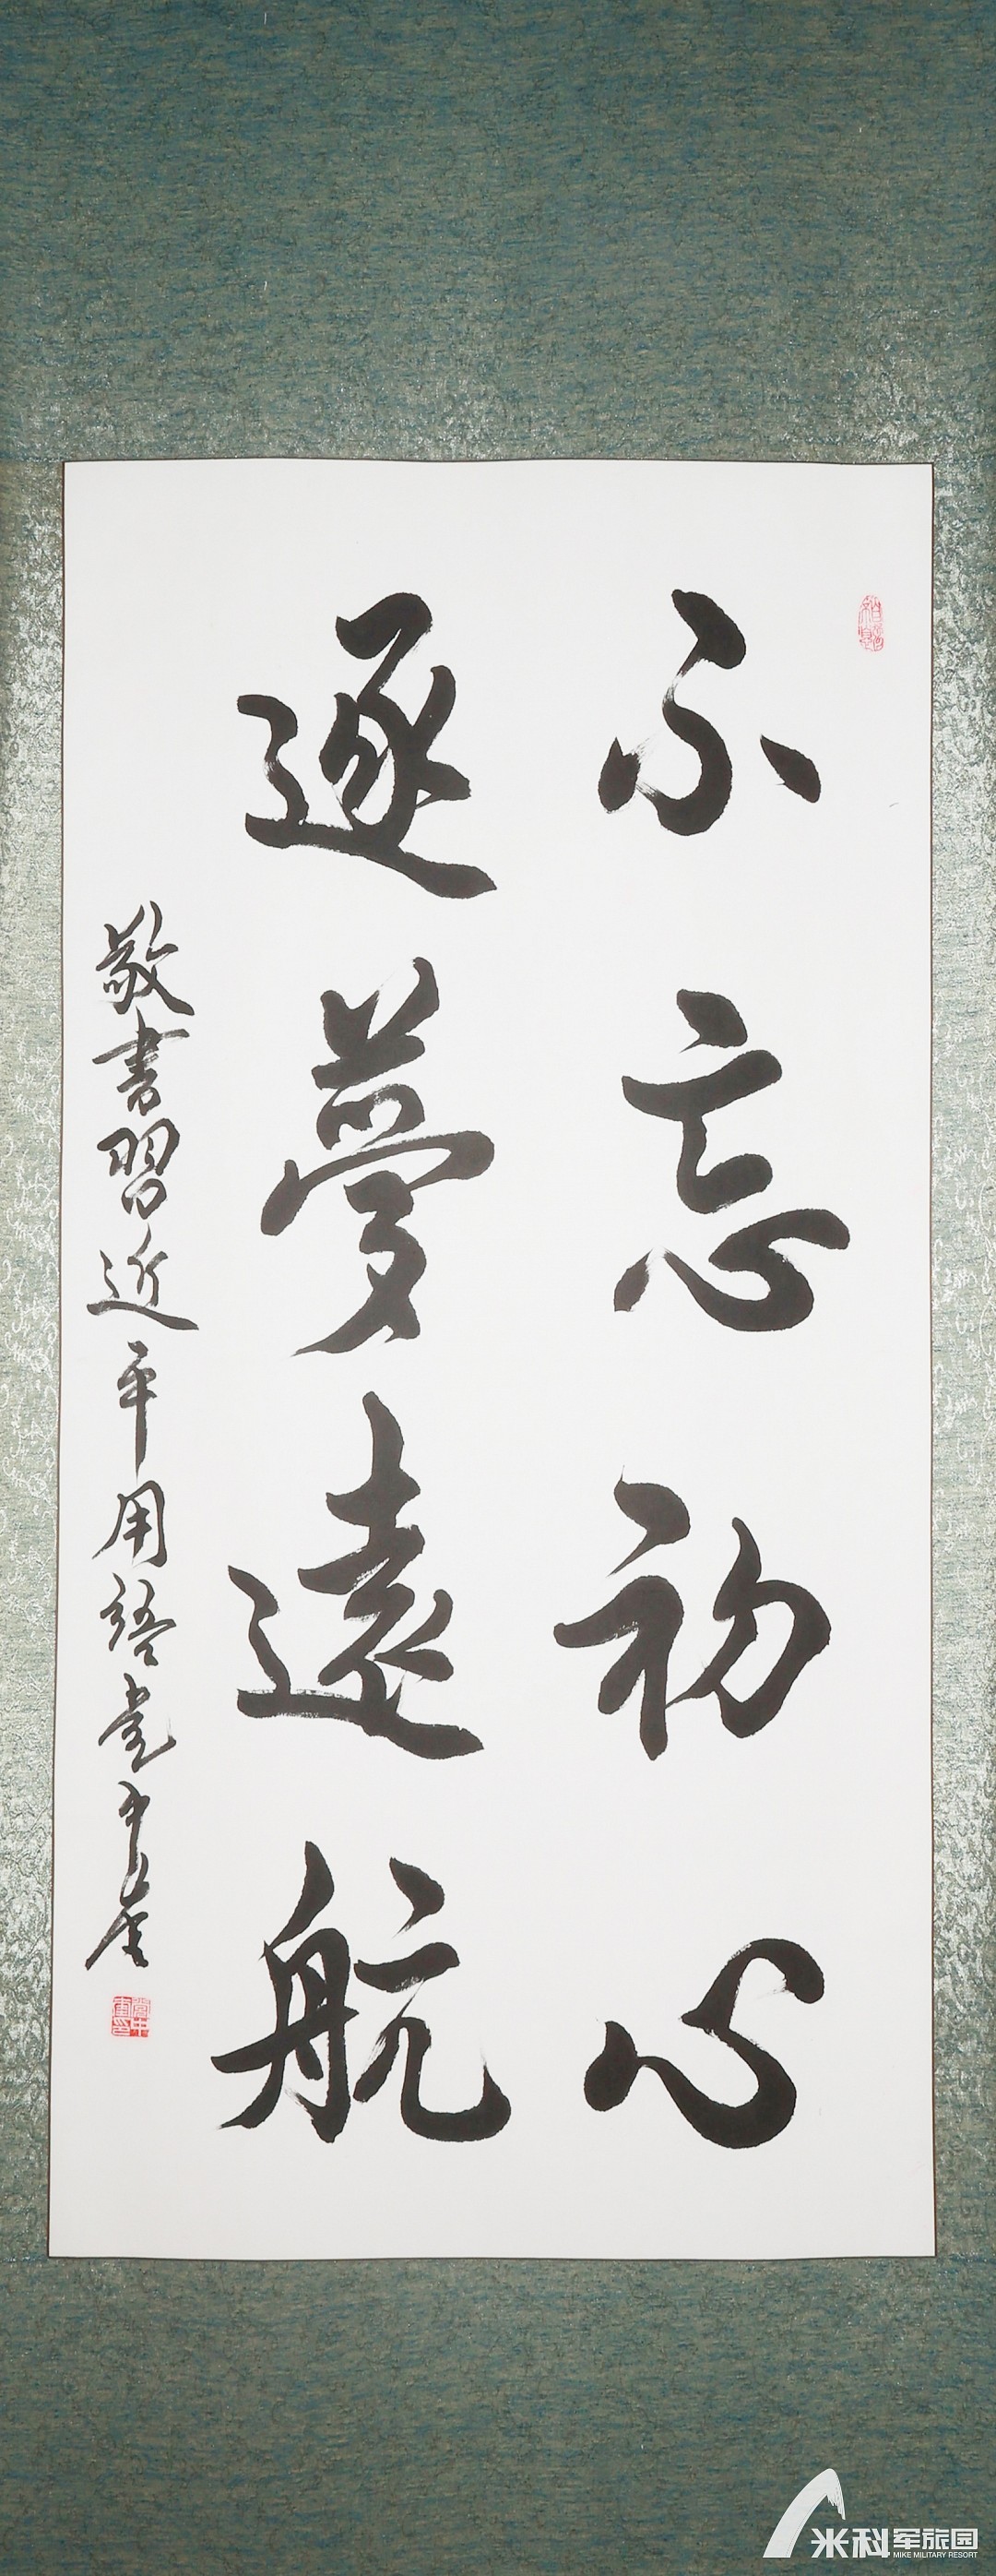 不忘初心
逐夢遠航
敬書習近平用語
米科军旅园
MIKE MILITARY RESORT